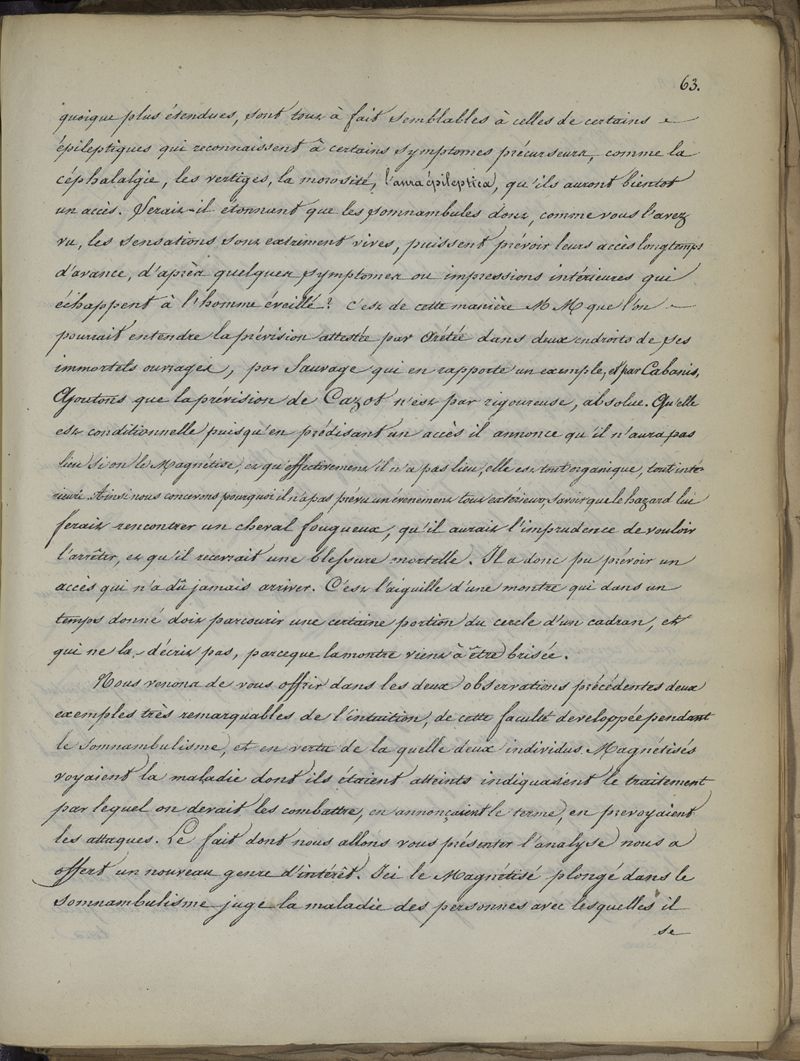 63.
quoique plus étendues, sont tout à fait semblables à celles de certains
épileptiques qui reconnaissent à certains symptomes précurseurs, comme la
céphalalgie, les vertiges, la morosité, l'aura épileptica, qu'ils auront bientot
un accès. Serait-il étonnant que les somnambules dont, comme vous l'avez
vu, les sensations sont extrêment vives, puissent prévoir leurs accès longtemps
d'avance, d'après quelques symptomes ou impressions intérieures qui
échappent à l'homme éveillé? c'est de cette manière M M que l'on
pourrait entendre la prévision attestée par Arétée dans deux endroits de ses
immortels ouvrages, par Sauvage qui en rapporte un exemple, et par Cabanis,
Ajoutons que la prévision de Cazot n'est pas rigoureuse, absolue. Qu'elle
est conditionnelle puisqu'en prédisant un accès il annonce qu'il n'aura pas
lieu si on le Magnétise, et qu'effectivement il n'a pas lieu, elle est tout organique, tout inté-
rieure. Ainsi nous concevons pourquoi il n'a pas prévu un évenement tout extérieur, Savoir que le hazard lui
ferait rencontrer un cheval fougueux, qu'il aurait l'imprudence de vouloir
l'arrêter, et qu'il recevrait une blessure mortelle. Il a donc pu prévoir un
accès qui n'a dû jamais arriver. C'est l'aiguille d'une montre qui dans un
temps donné doit parcourir une certaine portion du cercle d'un cadran, et
qui ne la décrit pas, parceque la montre vient à être brisée.
Nous venons de vous offrir dans les deux observations précédentes deux
exemples très remarquables de l'intuition, de cette faculté developpée pendant
le somnambulisme, et en vertu de la quelle deux individus Magnétisés
voyaient la maladie dont ils étaient atteints indiquasent le traitement
par lequel on devait les combattre, en annonçaient le terme, en prevoyaient
les attaques. Le fait dont nous allons vous présenter l'analyse nous a
offert un nouveau genre d'intérêt. Ici le Magnétisé plongé dans le
somnambulisme juge la maladie des personnes avec lesquelles il
se